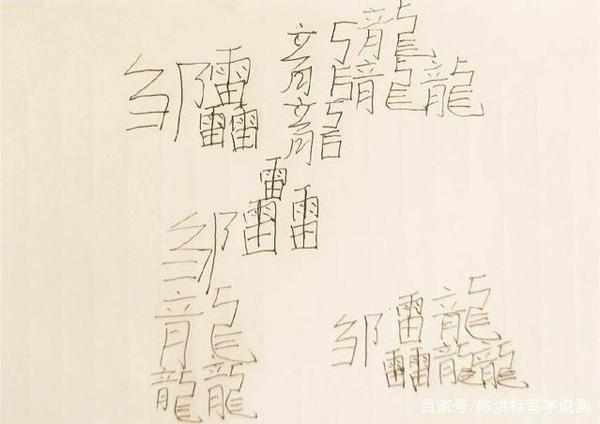 邹靐龘
邹靐
龘
邹靐龘
百家号/陈洪标写字说画